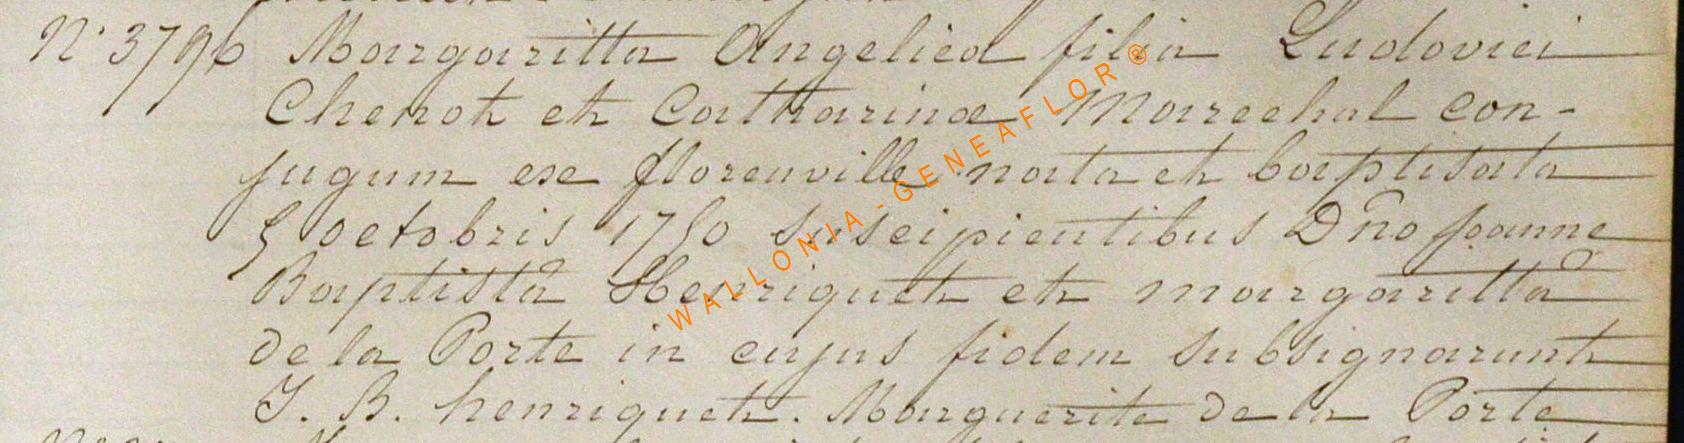 N° 3796 Margaritta Angelica filia Ludovici
Chenot et Catharinæ Marechal con-
jugum ex florenville nata et baptisata
5 octobris 1750 suscipientibus Dño Joanne
Baptista Henriquet et margaritta
de la Porte in cujus fidem subsignarunt
J. B. henriquet. Marguerite de la Porte
WALLONIA-GENEAFLOR®